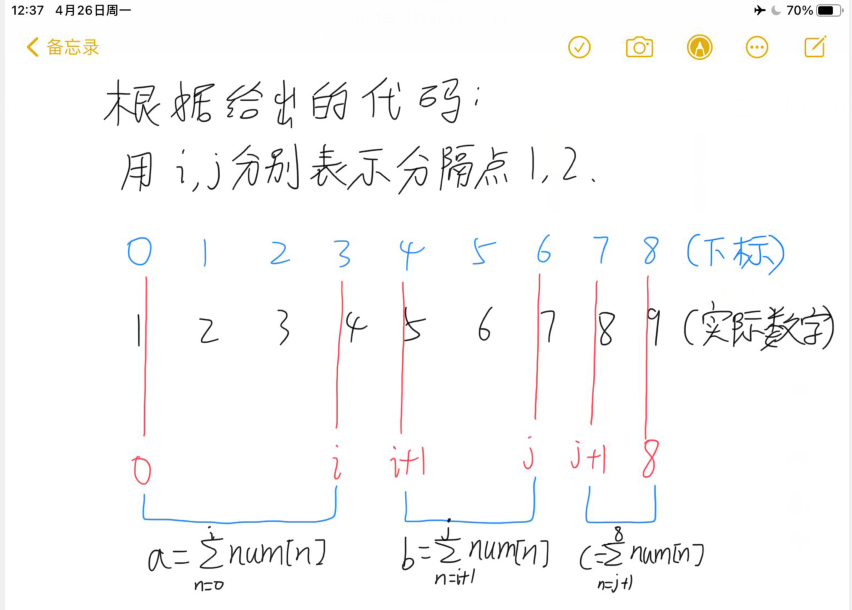 12:37 4月26日周一 70%
备忘录
根据给出的代码:
用 i,j 分别表示分隔点 1,2.
0 1 2 3 4 5 6 7 8 (下标)
1 2 3 4 5 6 7 8 9 (实际数字)
0 i i+1 j j+1 8
a=∑_{n=0}^{i} num[n] b=∑_{n=i+1}^{j} num[n] c=∑_{n=j+1}^{8} num[n]